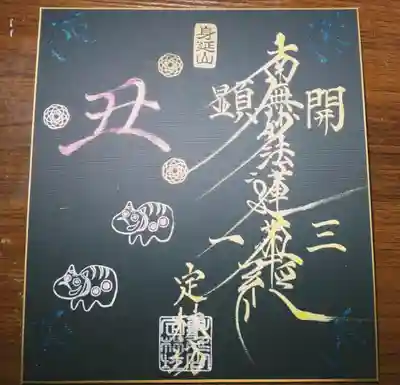 開三
南無妙法蓮華経
身延山
顕一
定林坊
丑